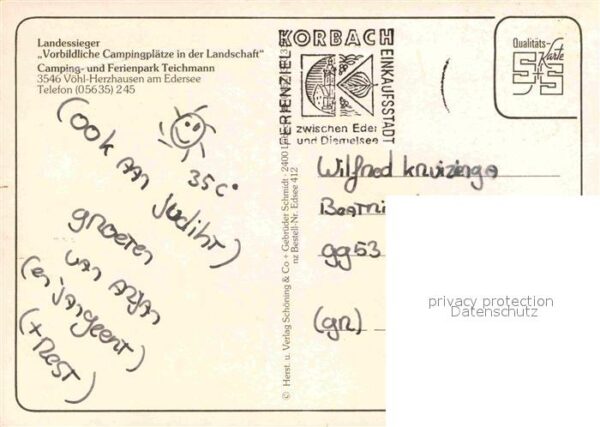 Landessieger
„Vorbildliche Campingplätze in der Landschaft“
Camping- und Ferienpark Teichmann
3546 Vöhl-Herzhausen am Edersee
Telefon (05635) 245
(ook aan Judiht)
35C°
groeten
van Arjan
(en jangeert)
(+ Rest)
© Herst. u. Verlag Schöning & Co + Gebrüder Schmidt · 2400
nz Bestell-Nr. Edsee 412
KORBACH
FERIENZIEL
EINKAUFSSTADT
zwischen Eder
und Diemelsee
Qualitäts-
Karte
S+S
Wilfried Kruizenga
9953
(gr)
privacy protection
Datenschutz